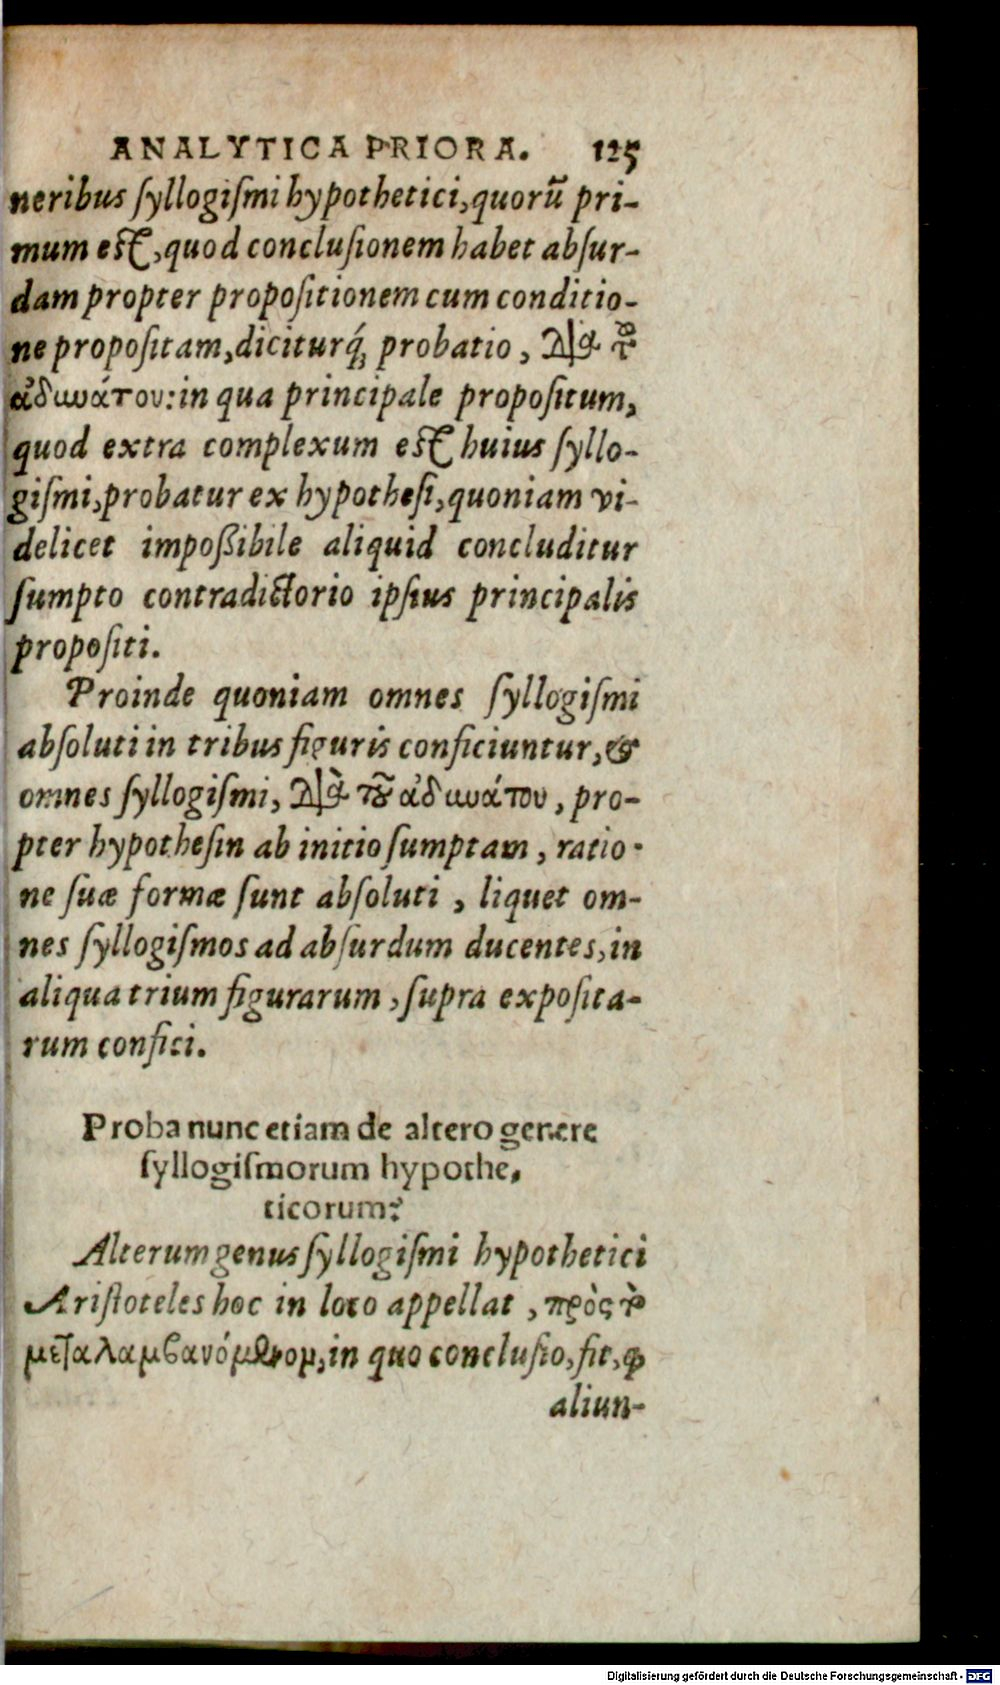 ANALYTICA PRIORA. 125
neribus ſyllogiſmi hypothetici, quorũ pri-
mum eſt, quod concluſionem habet abſur-
dam propter propoſitionem cum conditio-
ne propoſitam, diciturq́ꝫ probatio, διὰ τ
ἀδυνάτου: in qua principale propoſitum,
quod extra complexum eſt huius ſyllo-
giſmi, probatur ex hypotheſi, quoniam vi-
delicet impoßibile aliquid concluditur
ſumpto contradictorio ipſius principalis
propoſiti.
Proinde quoniam omnes ſyllogiſmi
abſoluti in tribus figuris conficiuntur, &
omnes ſyllogiſmi, διὰ τοῦ ἀδυνάτου, pro-
pter hypotheſin ab initio ſumptam, ratio-
ne ſuæ formæ ſunt abſoluti, liquet om-
nes ſyllogiſmos ad abſurdum ducentes, in
aliqua trium figurarum, ſupra expoſita-
rum confici.
Proba nunc etiam de altero genere
ſyllogiſmorum hypothe,
ticorum?
Alterum genus ſyllogiſmi hypothetici
Ariſtoteles hoc in loco appellat, πρὸς τὸ
μεταλαμβανόμενομ, in quo concluſio, fit, ꝙ
aliun-
Digitalisierung gefördert durch die Deutsche Forschungsgemeinschaft - DFG